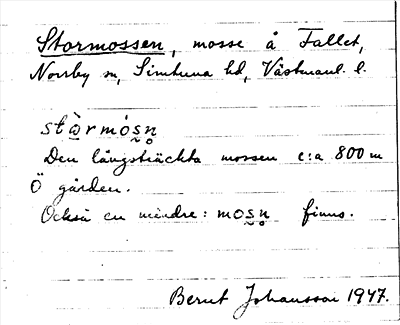 Stormossen, mosse å Fallet,
Norrby sn, Simtuna hd, Västmanl. l.
stὼrmósn̥
Den långsträckta mossen c:a 800 m
Ö gården.
Också en mindre: mosn̥ finns.
Bernt Johansson 1947.